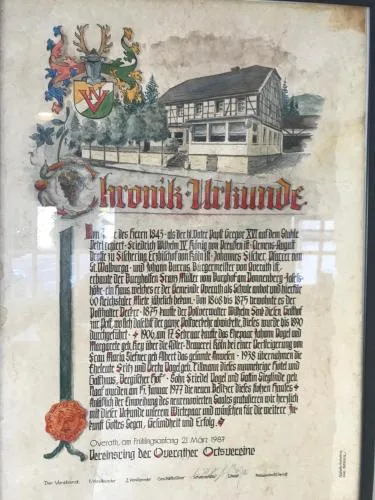 Chronik-Urkunde.
Im Jahre des Herrn 1845 - als der hl. Vater Papst Gregor XVI auf dem Stuhle
Petri regiert - Friedrich Wilhelm IV. König von Preußen ist - Clemens-August
Droste zu Vischering Erzbischof von Köln ist - Johannes Fischer, Pfarrer von
St. Walburga - und Johann Burrus, Bürgermeister von Overath ist,
erbaute der Burghalfen Franz Müller vom Burghof am
höhe - ein Haus, welches er der Gemeinde Overath als Schule anbot und hierfür
60 Reichstaler Miete jährlich bekam - Von 1868 bis 1875 bewohnte es der
Posthalter - 1875 kaufte der Postverwalter Wilhelm diesen Gasthof
zur Post, wo sich daselbst der ganze Postverkehr abwickelte, dieses wurde bis 1890
durchgeführt - 1906, am 17. Februar kaufte das Ehepaar Johann Vogel und
Margarete geb. über die Adler-Brauerei Köln bei einer Versteigerung von
Frau Maria geb. Albert das gesamte Anwesen - 1938 übernahmen die
Eheleute Fritz und Berta Vogel geb. Tillmann dieses nunmehrige Hotel und
Gasthaus, Bergischer Hof" - Sohn Friedel Vogel und Gattin Sieglinde geb.
wurden am 15. Januar 1977 die neuen Besitzer dieses stolzen Hauses
Anläßlich der Einweihung des renovierten Saales gratulieren wir herzlich
mit dieser Urkunde unserem Wirtepaar und wünschen für die weitere Zu-
kunft Gottes Segen, Gesundheit und Erfolg.
Overath, am Frühlingsanfang 21. März 1987
Vereinsring der Overather Ortsvereine
Der Vorstand: 1. Vorsitzender 2. Vorsitzender Geschäftsführer